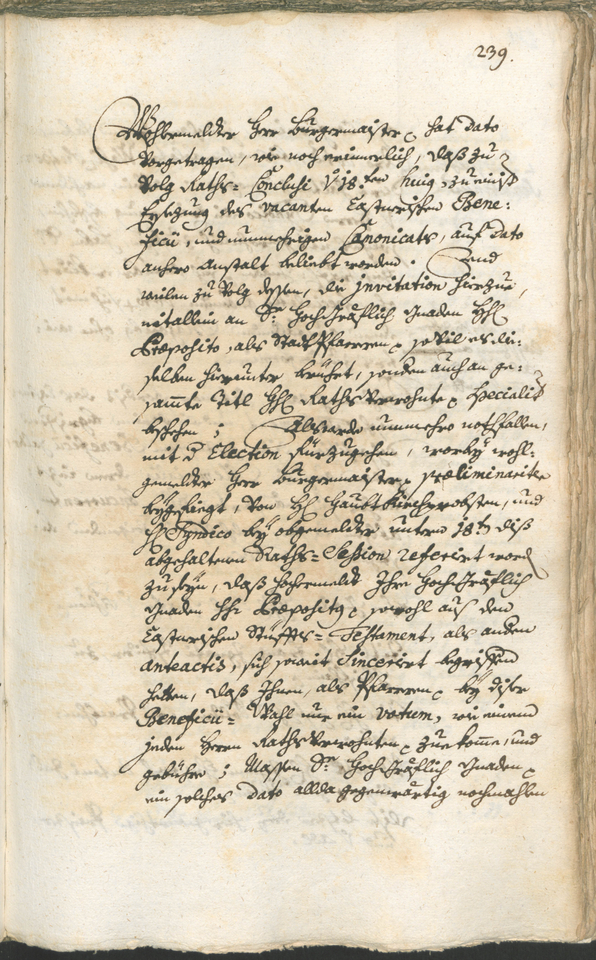 239.
Wohlermeldter Herr Burgermaister hat dato
vorgetragen, wie noch erinnerlich, daß zu
volg Raths-Conclusi v. 18.ten huig, zu einiß
Ersezung des vacanten Cast[n]erischen Bene-
ficii, und nunmehrigen Canonicats, auf dato
anhero Anstalt beliebt worden. Und
weilen zu volg dessen, die invitation hierzue,
nit allein an Sr. Hoch Gräflich Gnaden HH
Præposito, als Stadt Pfarrern, so vil es die-
selben hierunter berührt, sonden auch an ge-
samte Titl HH Raths Verwohnte specialit
beschehen; Als werde nunmehro nothfallen,
mit d Election fürzugehen, worbey wohl-
gemeldter Herr Burgermaister præliminariter
beygefüegt, von H Haubt Kirchprobsten, und
H Syndico bey obgemeldter untern 18.t diß
abgehaltenen Raths-Session referirt word
zu seyn, daß hochermeldt Ihre Hoch Gräflich
Gnaden HH Præpositus sowohl aus dem
Castnerischen Stüffts-Testament, als anden
anteactis, sich somit sincerirt begriffen
hetten, daß Ihnen, als Pfarrern bey diser
Beneficii-Wahl nur ein votum, wie einem
jeden Herrn Raths Verwohnten zuekomme, und
gebühre; Massen Sr Hoch Gräflich Gnaden
ein solches dato allda gegenwärtig nochmahlen